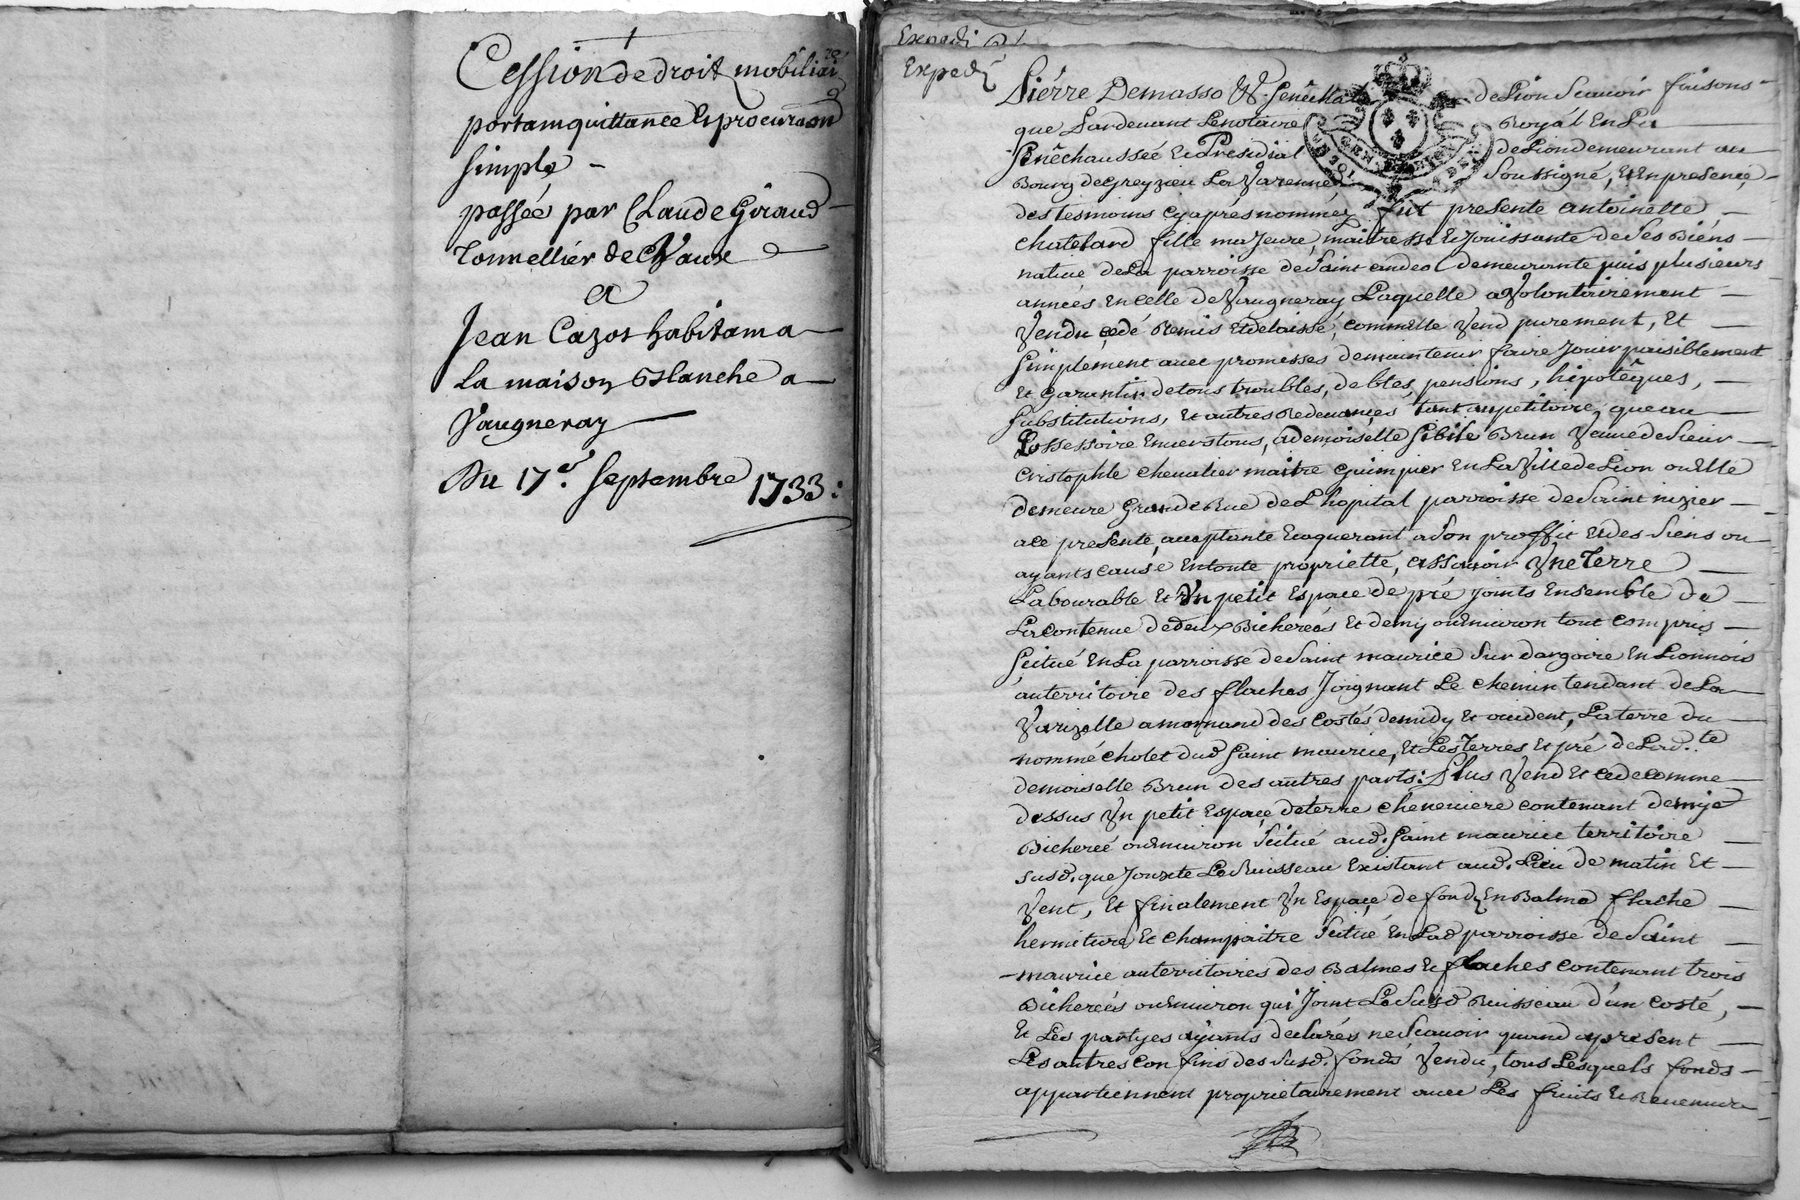 Cession de droit mobiliai
re
portant quittance & procuraon
simple
passée par Claude Giraud
Tonnellier de Vaux
et
Jean Cazot habitant a
La maison Blanche a
Vaugneray
Du 17e. Septembre 1733:
Expedi
Expedi
Pierre Demasso & Senêchal de Lion Scauoir faisons
que Pardeuant Le notaire Royal En La
Senêchaussée et Presidial de Lion demeurant au
Bourg de Greyzieu La Varenne Soussigné, Et En presence
des tesmoins cy aprés nommez fut presente antoinette
chatelard fille majeure, maitresse et Jouissante de Ses Biéns
natiue de La parroisse de Saint andeol demeurante puis plusieurs
années En celle de Vaugneray Laquelle a Volontairement
Vendu cedé Remis Et delaissé, comme Elle Vend purement, Et
Simplement auec promesses de maintenir faire Jouir paisiblement
Et Garantir de tous troubles, debtes, pensions, hipotêques,
Substitutions, Et autres Redeuances tant au petitoire que au
Possessoire Enuers tous, a demoiselle Sibile Brun Veuue de Sieur
Cristophle cheualier maitre Guimpier En La Ville de Lion ou Elle
demeure Grande Rue de L'hopital parroisse de Saint nizier
a ce presente, acceptante Et aquerant a Son proffit Et des Siens ou
ayants cause En toute proprietté, assauoir Vne Terre
Labourable Et Vn petit Espace de pré joints Ensemble de
La contenue de deux Bicherées Et demy ou Enuiron tout compris
Scitué En La parroisse de Saint maurice Sur dargoire En Lionnois
au territoire des flaches Joignant Le chemin tendant de La
Varizelle a mornand des costés de midy Et occident, La terre du
nommé cholet dud Saint maurice, Et Les Terres Et pré de Lad.te
demoiselle Brun des autres parts: Plus Vend Et cede comme
dessus Vn petit Espace de terre cheneuiere contenant demye
Bicherée ou Enuiron Scitué aud. Saint maurice territoire
susd. que Jouxte Le Ruisseau Existant aud. Lieu de matin Et
Vent, Et finalement Vn Espace de fond En Balme flache
hermiture Et champaitre Scitué En Lad parroisse de Saint
maurice au territoires des Balmes Et flaches contenant trois
Bicherées ou Enuiron qui Joint Le Susd Ruisseau d'un costé,
Et Les partyes ayants declarés ne Scauoir quand a present
Les autres confins des Susd. fonds Vendu, tous Lesquels fonds
appartiennent proprietairement auec Les fruits Et Reuenus